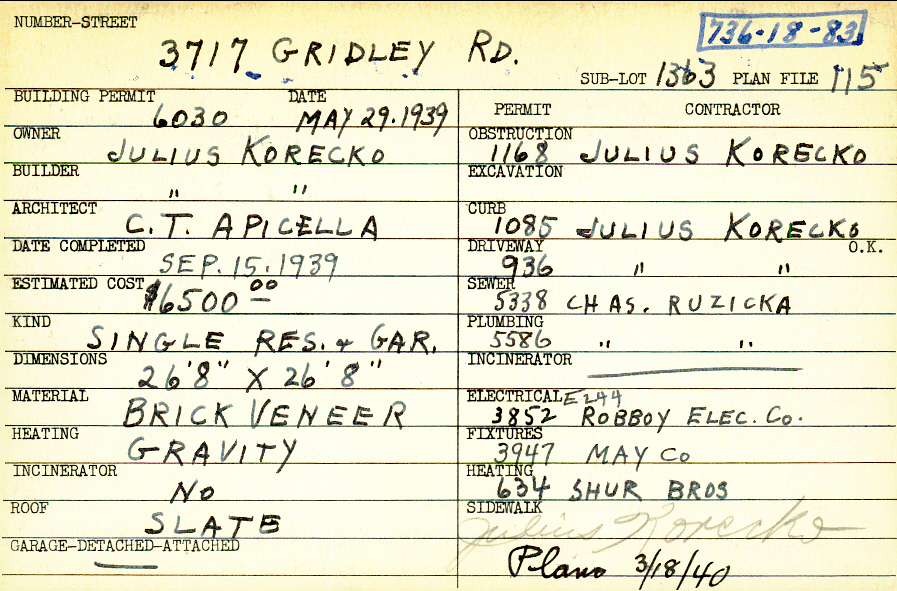 NUMBER-STREET
736-18-83
3717 GRIDLEY RD.
SUB-LOT 1363 PLAN FILE 115
BUILDING PERMIT DATE
6030 MAY 29.1939
OWNER
JULIUS KORECKO
BUILDER
" "
ARCHITECT
C.T. APICELLA
DATE COMPLETED
SEP. 15. 1939
ESTIMATED COST
$6500 00
KIND
SINGLE RES. & GAR.
DIMENSIONS
26'8" X 26'8"
MATERIAL
BRICK VENEER
HEATING
GRAVITY
INCINERATOR
NO
ROOF
SLATE
GARAGE-DETACHED-ATTACHED
PERMIT CONTRACTOR
OBSTRUCTION
1168 JULIUS KORECKO
EXCAVATION
CURB
1085 JULIUS KORECKO
DRIVEWAY O.K.
936 " "
SEWER
5338 CHAS. RUZICKA
PLUMBING
5586 " "
INCINERATOR
ELECTRICAL E244
3852 ROBBOY ELEC. Co.
FIXTURES
3947 MAY Co
HEATING
634 SHUR BROS
SIDEWALK
Julius Korecko
Plans 3/18/40